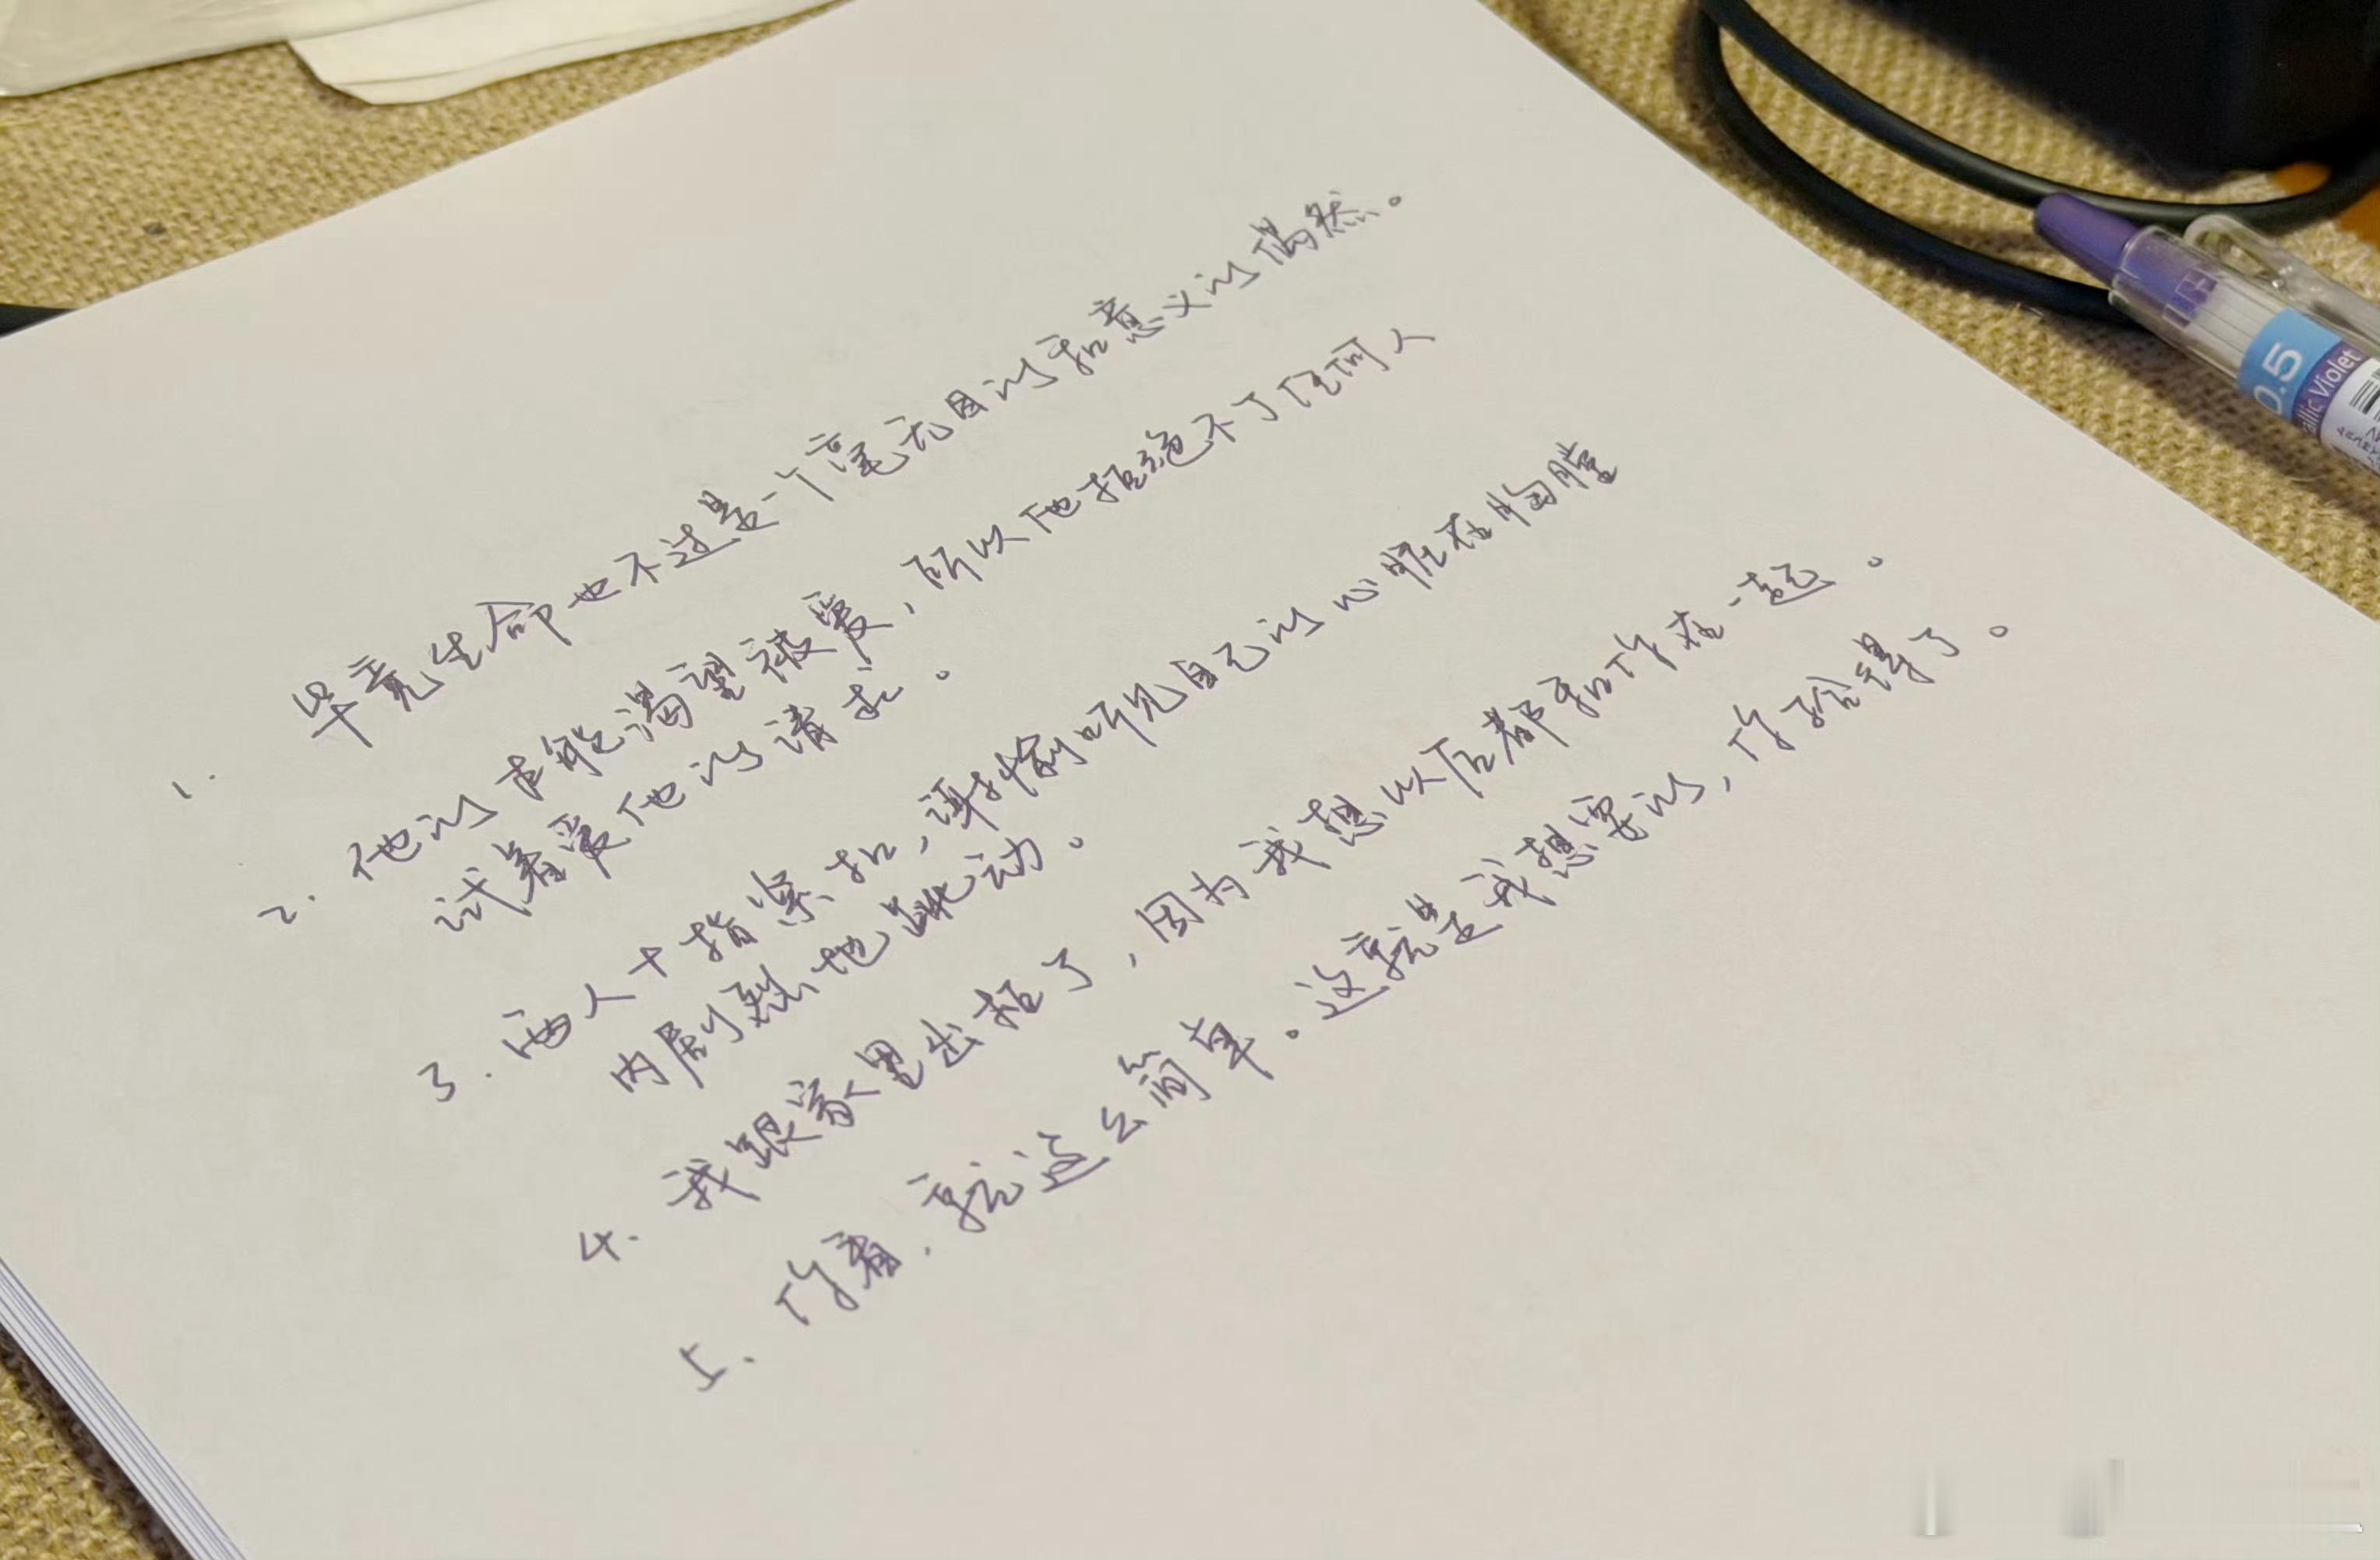 1. 毕竟生命也不过是一个毫无目的和意义的偶然。
2. 他的本能渴望被爱,所以他拒绝不了任何人
试着爱他的请求。
3. 两人十指紧扣,谭愉听见自己的心脏在胸膛
内剧烈地跳动。
4. 我跟家里出柜了,因为我想以后都和你在一起。
5. 你看,就这么简单。这就是我想要的,你给得了。
0.5
llic Violet